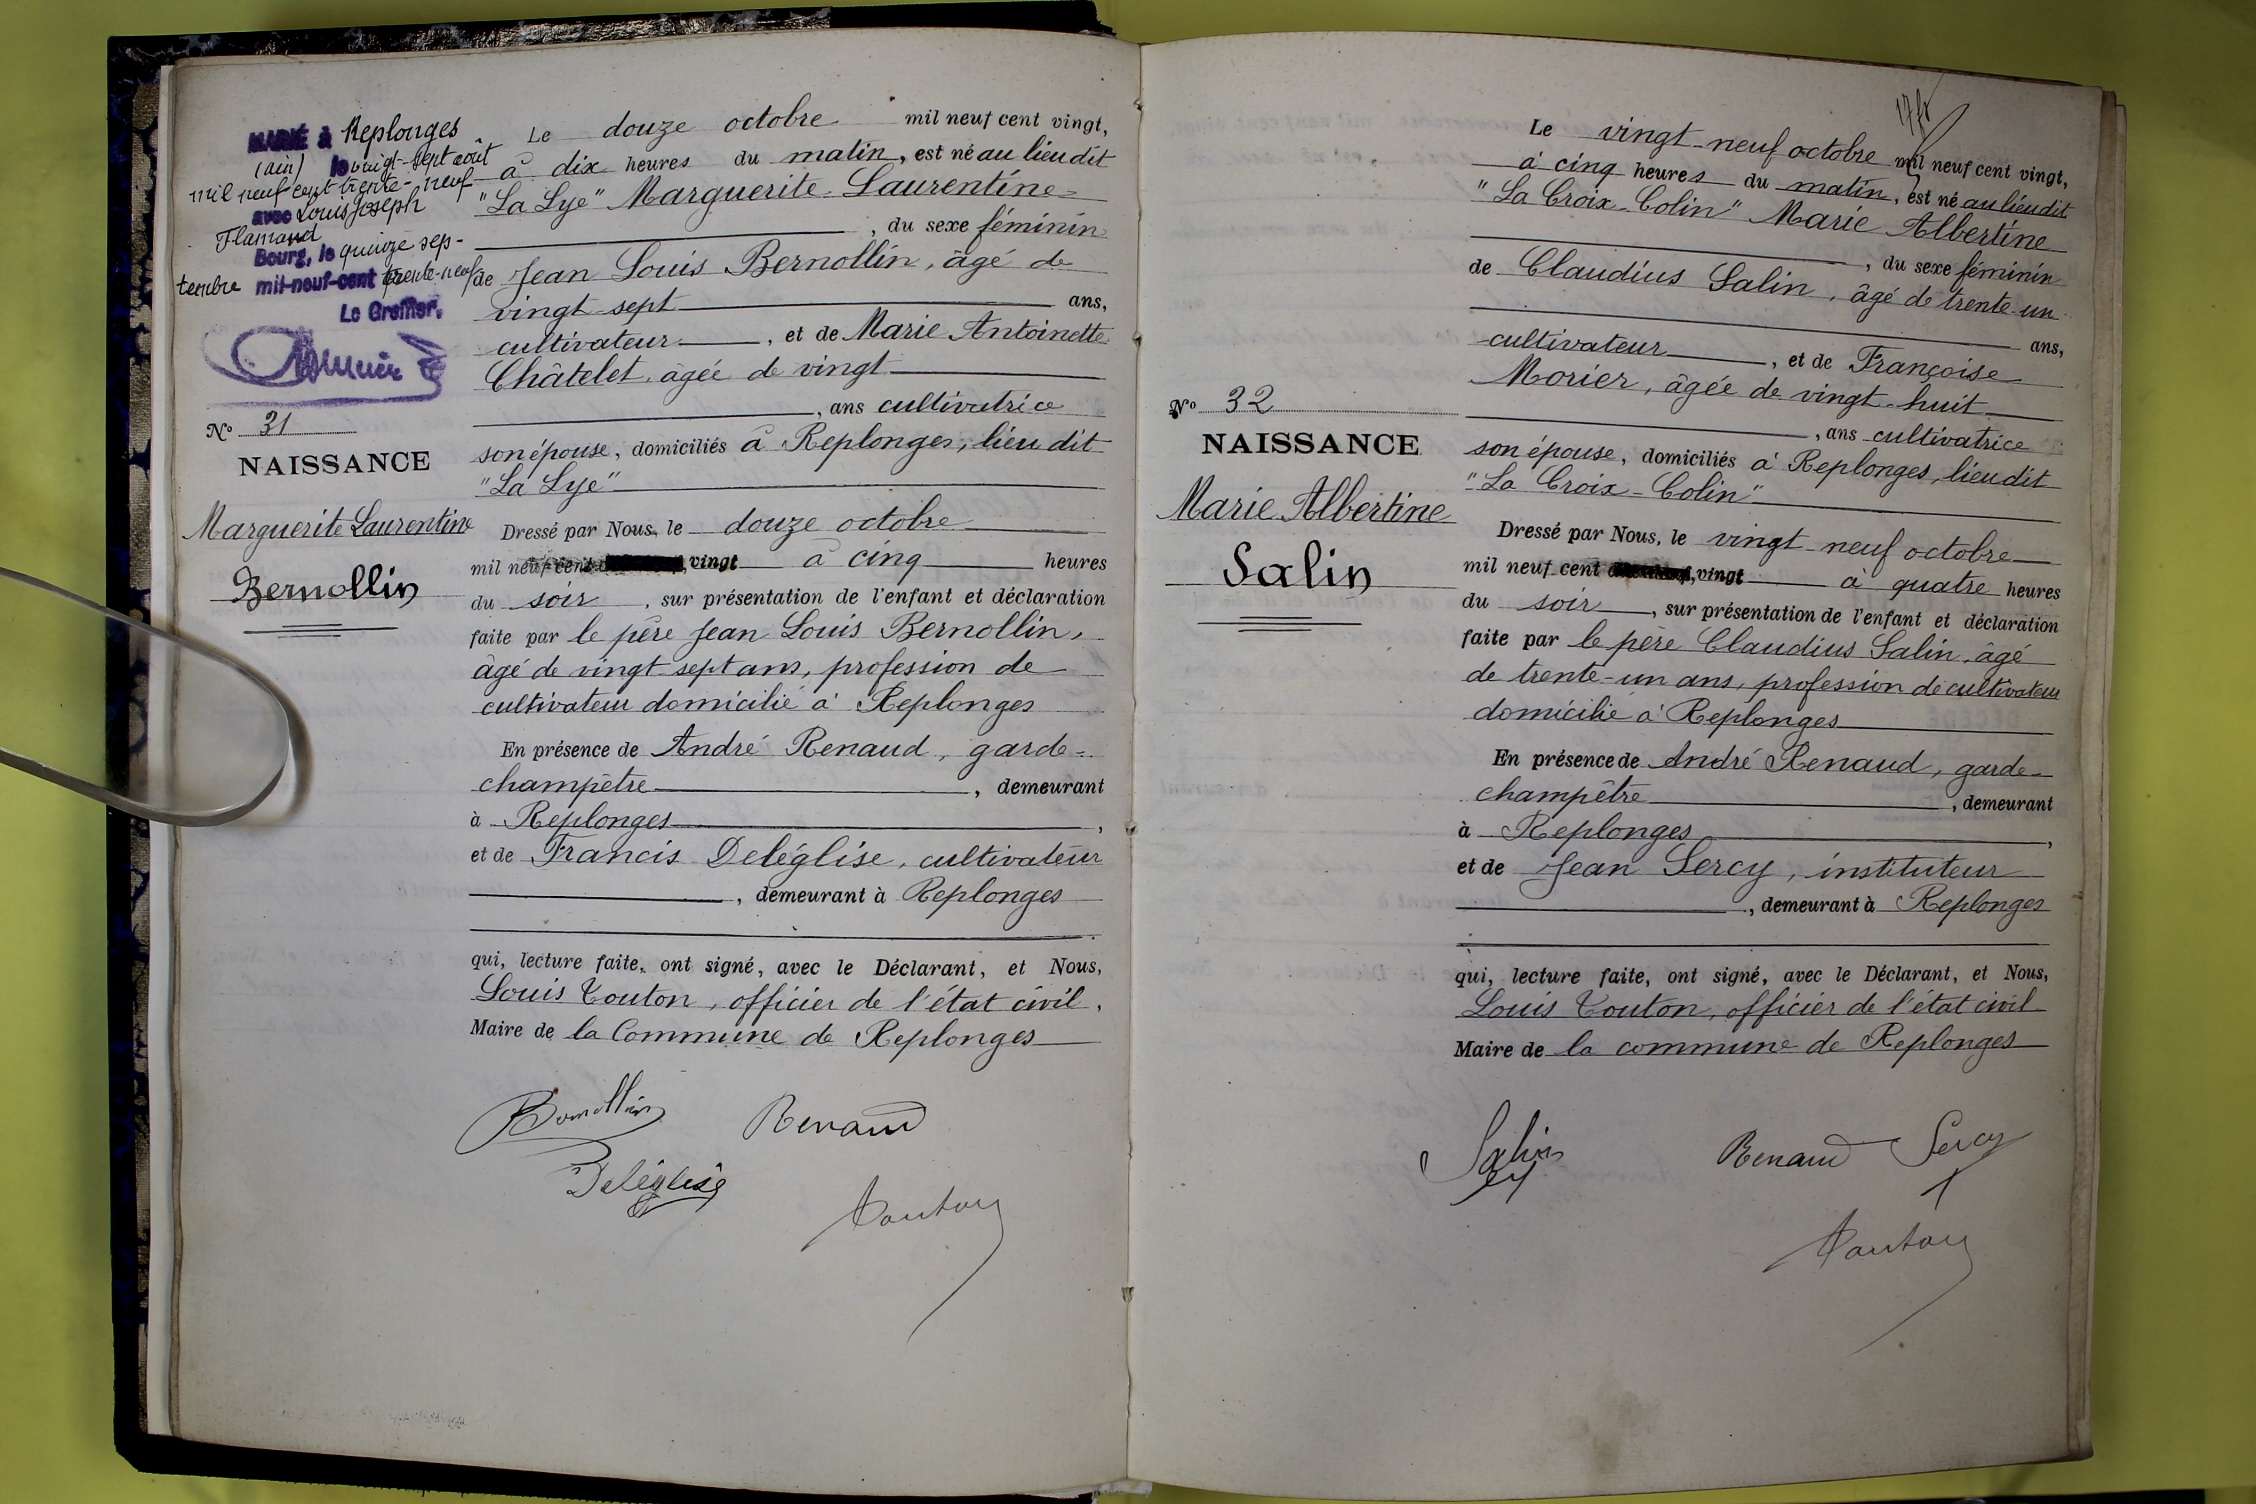 MARIÉ à Replonges
(Ain) le vingt-sept août
mil neuf cent trente-neuf
avec Louis Joseph
Flamand
Bourg, le quinze sep-
tembre mil-neuf-cent trente-neuf
Le Greffier,
N° 31
NAISSANCE
Marguerite Laurentine
Bernollin
Le douze octobre mil neuf cent vingt,
à dix heures du matin, est né au lieu dit
"La Lye" Marguerite Laurentine
, du sexe féminin
de Jean Louis Bernollin, âgé de
vingt-sept ans,
cultivateur, et de Marie Antoinette
Châtelet, âgée de vingt
, ans cultivatrice
son épouse, domiciliés à Replonges, lieu dit
"La Lye"
Dressé par Nous, le douze octobre
mil neuf cent vingt à cinq heures
du soir, sur présentation de l'enfant et déclaration
faite par le père Jean Louis Bernollin,
âgé de vingt sept ans, profession de
cultivateur domicilié à Replonges
En présence de André Renaud, garde-
champêtre, demeurant
à Replonges,
et de Francis Deléglise, cultivateur
, demeurant à Replonges
qui, lecture faite, ont signé, avec le Déclarant, et Nous,
Louis Touton, officier de l'état civil,
Maire de la Commune de Replonges
Bernollin Renaud
Deléglise
Touton
N° 32
NAISSANCE
Marie Albertine
Salin
Le vingt-neuf octobre mil neuf cent vingt,
à cinq heures du matin, est né au lieu dit
"La Croix-Colin" Marie Albertine
, du sexe féminin
de Claudius Salin, âgé de trente-un
ans,
cultivateur, et de Françoise
Morier, âgée de vingt-huit
, ans cultivatrice
son épouse, domiciliés à Replonges, lieu dit
"La Croix-Colin"
Dressé par Nous, le vingt-neuf octobre
mil neuf cent vingt à quatre heures
du soir, sur présentation de l'enfant et déclaration
faite par le père Claudius Salin, âgé
de trente-un ans, profession de cultivateur
domicilié à Replonges
En présence de André Renaud, garde-
champêtre, demeurant
à Replonges,
et de Jean Sercy, instituteur
, demeurant à Replonges
qui, lecture faite, ont signé, avec le Déclarant, et Nous,
Louis Touton, officier de l'état civil
Maire de la commune de Replonges
Salin Renaud Sercy
Touton